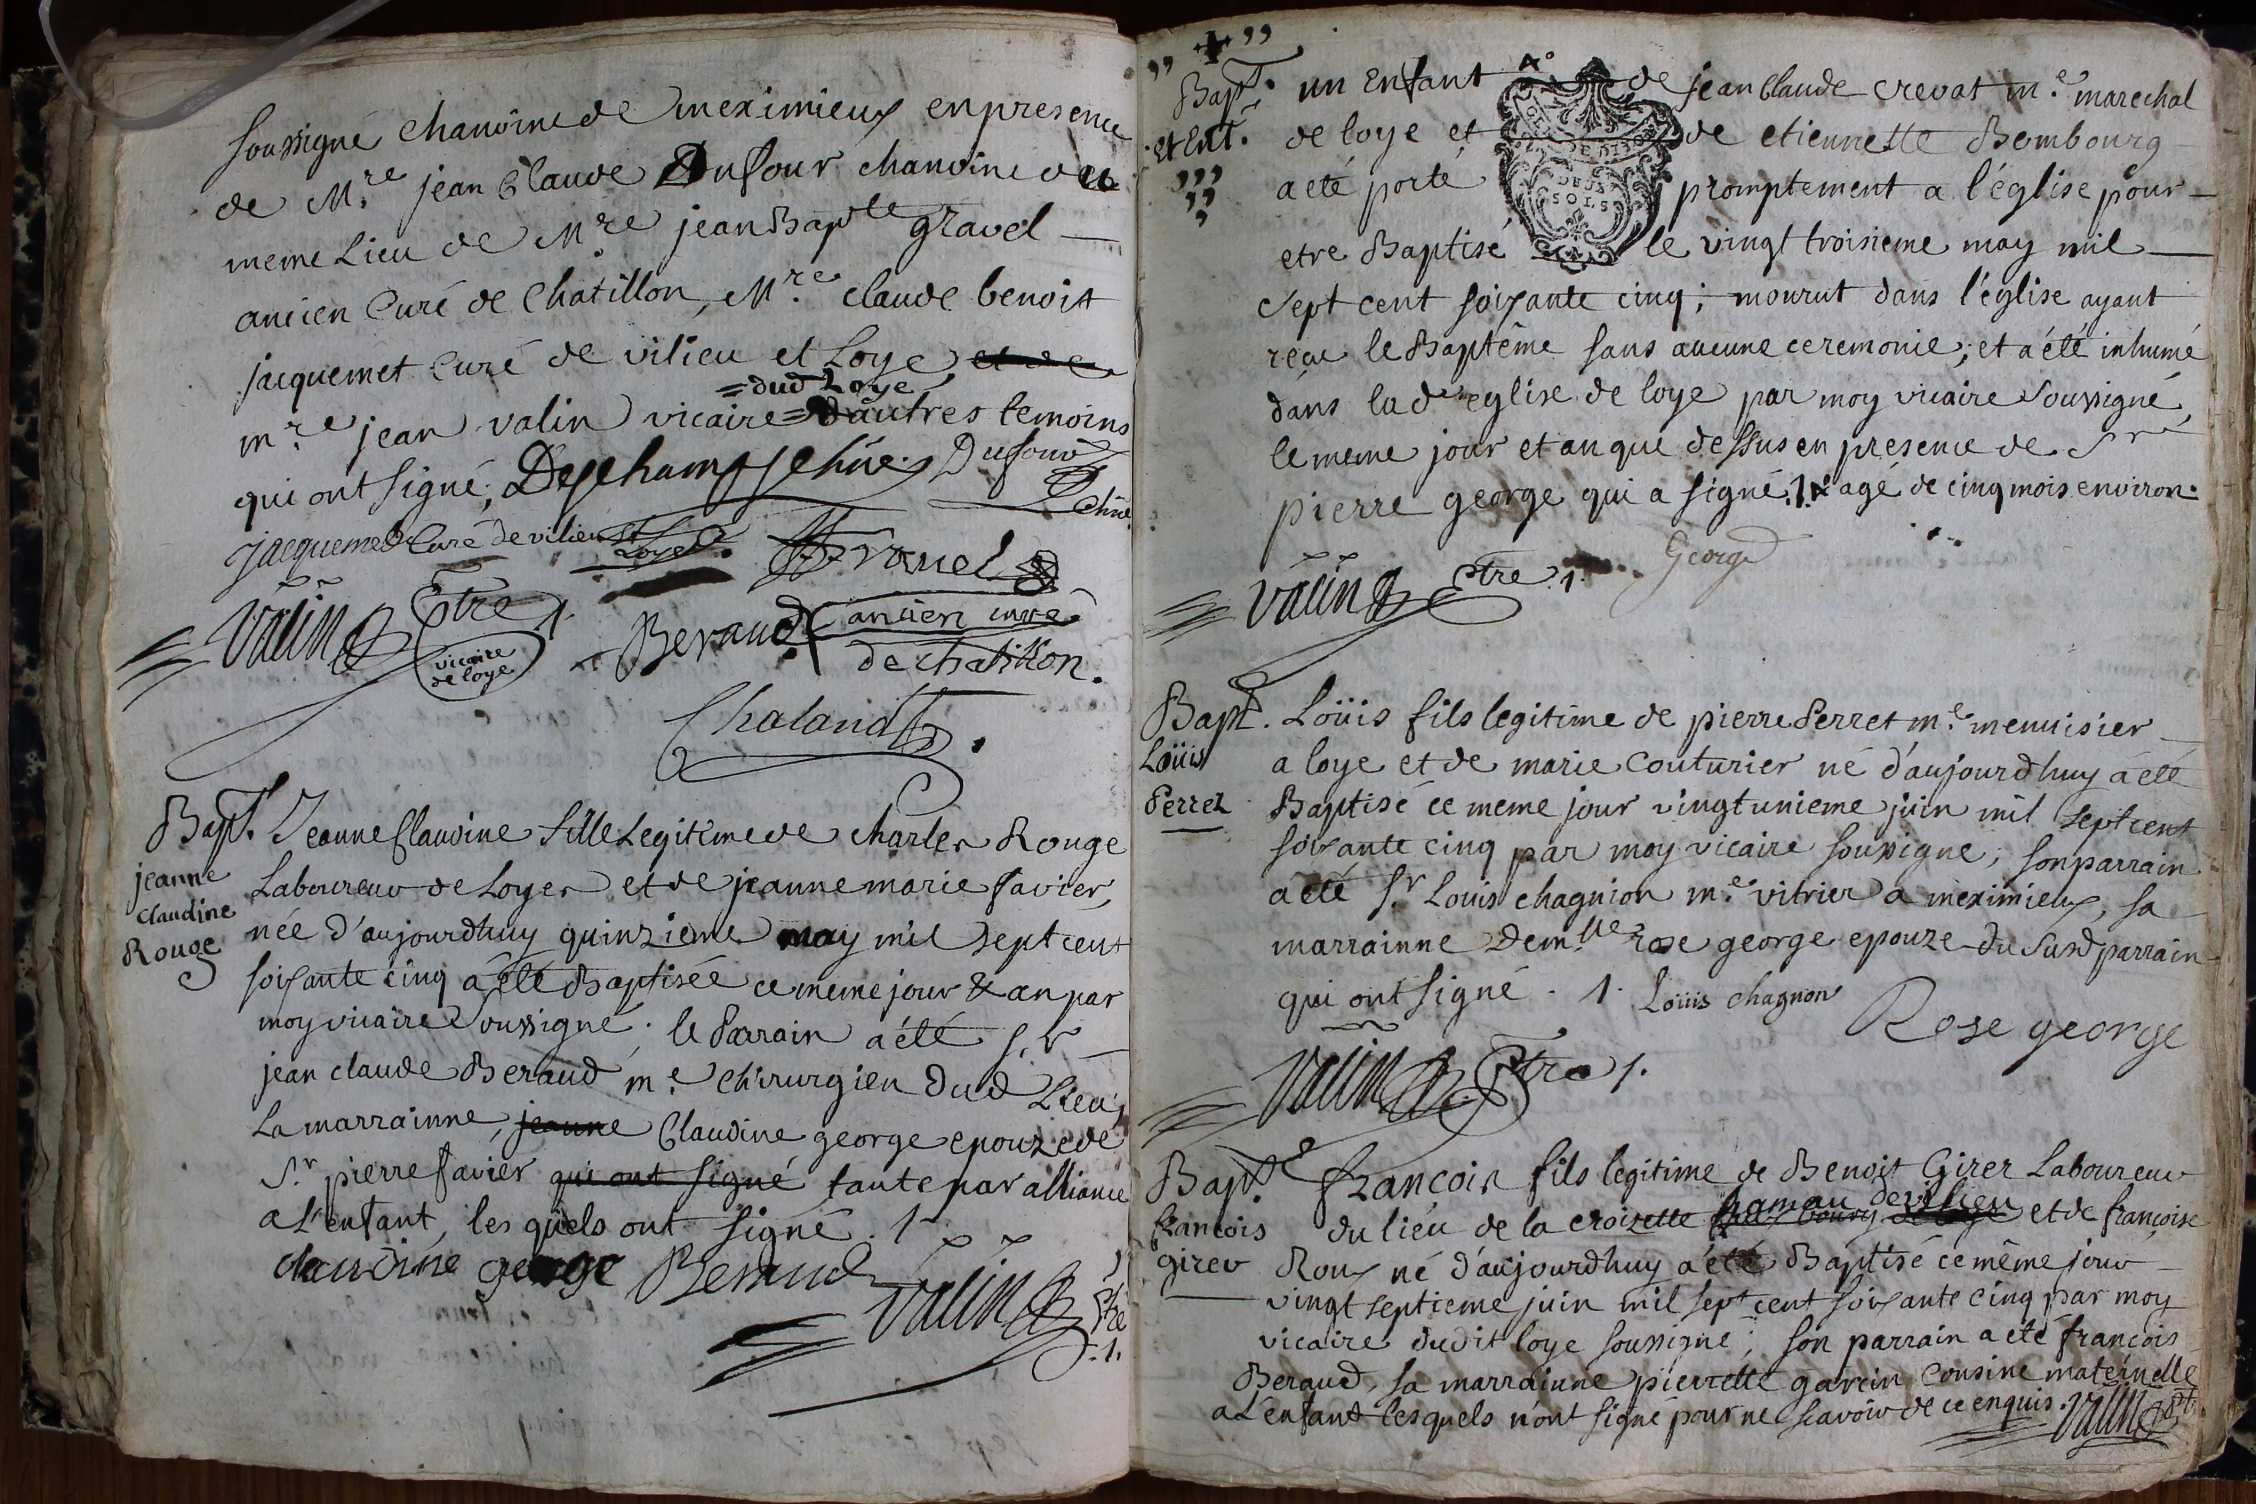 soussigné chanoine de meximieux en presence
de M.re jean Claude Dufour chanoine du
meme Lieu de M.re jean Bap.te gravel
ancien Curé de Chatillon, M.re claude benoist
jacquemet Curé de vilieu et Loye et de
=dud Loye
m.re jean valin vicaire= d'autres temoins
qui ont signé, Deschamps chne. Dufour
chne.
jacquemet Curé de vilieu et
Loye.
gravel
ancien curé
de chatillon.
valin Ptre 1.
vicaire
de loye
Beraud
Chaland
Bapt. Jeanne Claudine fille Legitime de charles Rouge
jeanne
claudine
Rouge
Laboureur de Loyes et de jeanne marie favier,
née d'aujourdhuy quinzieme may mil sept cent
soixante cinq a été Baptisée ce meme jour & an par
moy vicaire soussigné. le Parrain a été s.r
jean claude Beraud m.e chirurgien dud Lieu,
La marrainne, jeanne Claudine george epouze de
s.r pierre favier qui ont signé tante par alliance
a L'enfant, les quels ont signé. 1.
claudine george Beraud
valin Ptre
.1.
Bapt.
et Ent.
un Enfant de jean Claude crevat m.e marechal
de loye et de etiennette Bombourg
a eté porté promptement a l'église pour
etre Baptisé le vingt troisieme may mil
DEUX
SOLS
sept cent soixante cinq; mourut dans l'église ayant
reçu le Baptême sans aucune ceremonie; et a été inhumé
dans lad. eglise de loye par moy vicaire soussigné,
le meme jour et an que dessus en presence de Sr.
pierre george qui a signé .1. & agé de cinq mois environ.
George
valin Ptre .1.
Bapt.
Loüis
Perret
Loüis fils legitime de pierre Perret m.e menuisier
a loye et de marie Couturier né d'aujourdhuy a été
Baptisé ce meme jour vingt unieme juin mil sept cent
soixante cinq par moy vicaire soussigné; son parrain
a été s.r Louis chagnion m.e vitrier a meximieux, sa
marrainne Dem.lle rose george epouze du susd parrain
qui ont signé. 1. Loüis chagnon
Rose george
valin Ptre 1.
Bapt.
francois
girer
francois fils legitime de Benoit Girer Laboureur
hamau de vilieu
du lieu de la croizette et de françoise
Roux né d'aujourdhuy a été Baptisé ce même jour
vingt septieme juin mil sept cent soixante cinq par moy
vicaire dudit loye soussigné; son parrain a eté françois
Beraud, sa marrainne pierrette garcin cousine maternelle
a L'enfant lesquels n'ont signé pour ne scavoir de ce enquis. valin Pt.